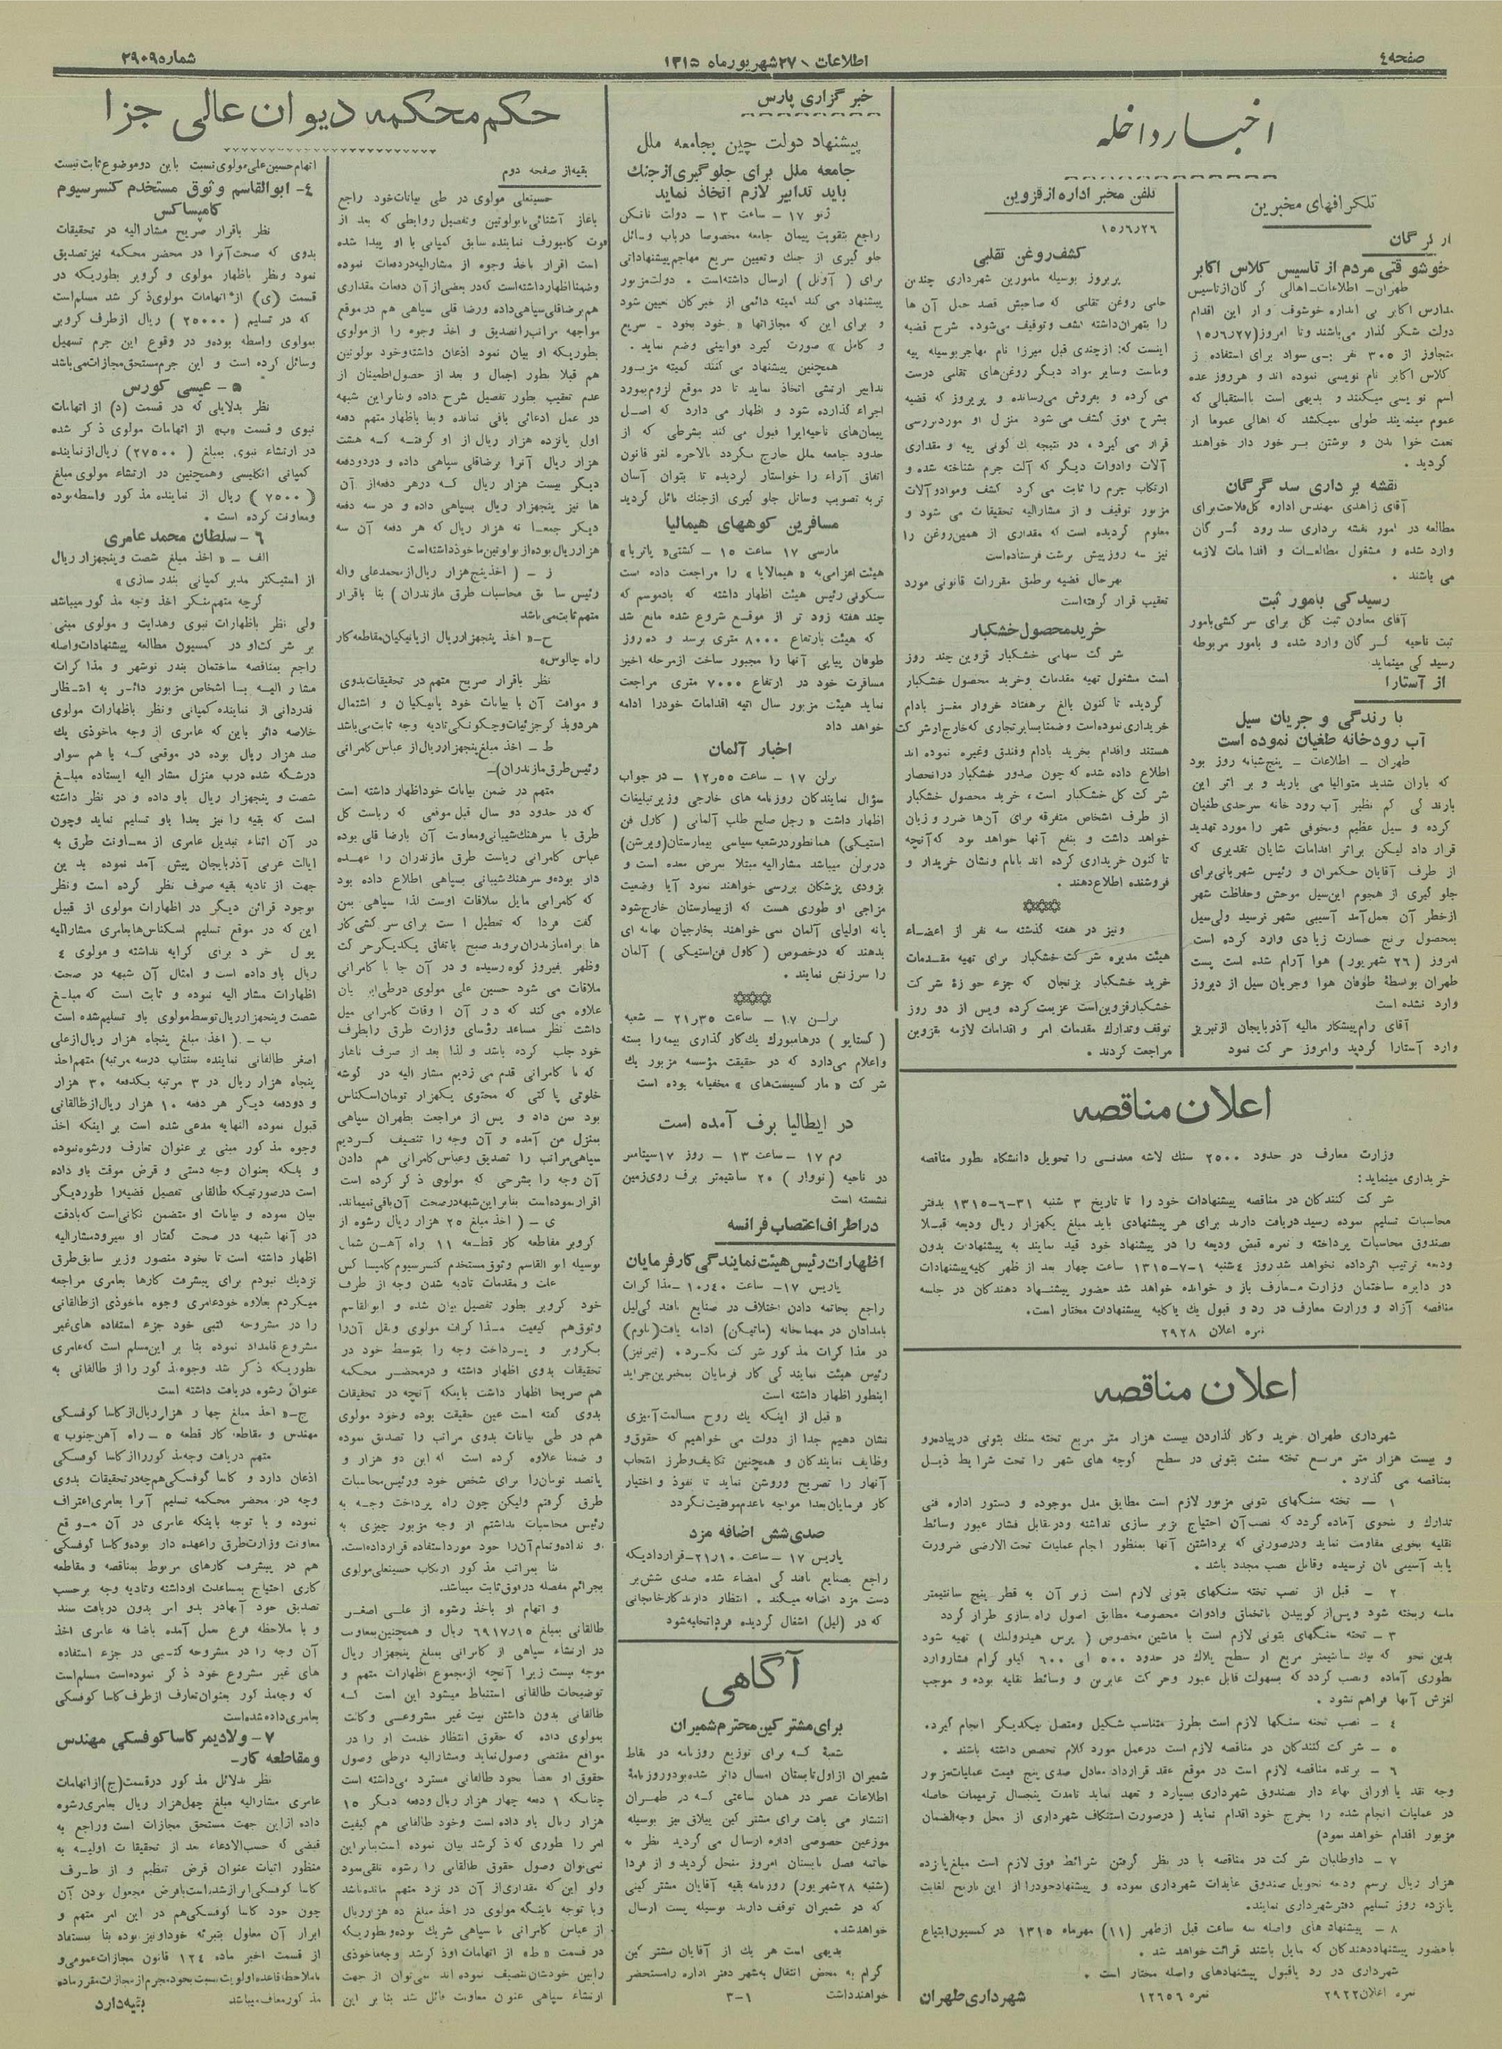 صفحه ٤
اطلاعات - ۲۷ شهریور ماه ۱۳۱۵
شماره ۲۹۰۹
اخبار داخله
تلگرافهای مخبرین
از گرگان
خوشوقتی مردم از تاسیس کلاس اکابر
طهران - اطلاعات - اهالی گرگان از تاسیس
مدارس اکابر بی اندازه خوشوقت و از این اقدام
دولت شکر گذار می‌باشند و تا امروز (۱۵/۶/۲۷)
متجاوز از ۳۰۵ نفر بی سواد برای استفاده از
کلاس اکابر نام نویسی نموده اند و هر روز عده
اسم نویسی میکنند و بدیهی است با استقبالی که
عموم مینمایند طولی نمیکشد که اهالی عموما از
نعمت خواندن و نوشتن برخوردار خواهند
گردید .
نقشه برداری سد گرگان
آقای زاهدی مهندس اداره کل فلاحت برای
مطالعه در امور نقشه برداری سد رود گرگان
وارد شده و مشغول مطالعات و اقدامات لازمه
می باشند .
رسیدگی بامور ثبت
آقای معاون ثبت کل برای سرکشی بامور
ثبت ناحیه گرگان وارد شده و بامور مربوطه
رسیدگی مینماید
از آستارا
بارندگی و جریان سیل
آب رودخانه طغیان نموده است
طهران - اطلاعات - پنج شبانه روز بود
که باران شدید متوالیا می بارید و بر اثر این
بارندگی کم نظیر آب رودخانه سرحدی طغیان
کرده و سیل عظیم و مخوفی شهر را مورد تهدید
قرار داد لیکن براثر اقدامات شایان تقدیری که
از طرف آقایان حکمران و رئیس شهربانی برای
جلوگیری از هجوم این سیل موحش و حفاظت شهر
از خطر آن بعمل آمد آسیبی بشهر نرسید ولی سیل
بمحصول برنج خسارت زیادی وارد کرده است
امروز (۲۶ شهریور) هوا آرام شده است پست
طهران بواسطه طوفان هوا و جریان سیل از دیروز
وارد نشده است
آقای رام پیشکار مالیه آذربایجان از تبریز
وارد آستارا گردید و امروز حرکت نمود
تلفن مخبر اداره از قزوین
۱۵/۶/۲۶
کشف روغن تقلبی
پریروز بوسیله مامورین شهرداری چندین
حلبی روغن تقلبی که صاحبش قصد حمل آن ها
را بتهران داشته کشف و توقیف می‌شود. شرح قضیه
اینست که: از چندی قبل میرزا نام مهاجر بوسیله پیه
و ماست و سایر مواد دیگر روغن‌های تقلبی درست
می کرده و بفروش می‌رسانده و پریروز که قضیه
بشرح فوق کشف می شود منزل او مورد بررسی
قرار می گیرد. در نتیجه یک گونی پیه و مقداری
آلات و ادوات دیگر که آلت جرم شناخته شده و
ارتکاب جرم را ثابت می کرد کشف و مواد و آلات
مزبور توقیف و از مشارالیه تحقیقات می شود و
معلوم گردیده است که مقداری از همین روغن را
نیز سه روز پیش برشت فرستاده است
بهر حال قضیه بر طبق مقررات قانونی مورد
تعقیب قرار گرفته است
خرید محصول خشکبار
شرکت سهامی خشکبار قزوین چند روز
است مشغول تهیه مقدمات و خرید محصول خشکبار
گردیده تا کنون بالغ بر هفتاد خروار مغز بادام
خریداری نموده است و ضمنا بسایر تجاری که خارج از شرکت
هستند و اقدام بخرید بادام و فندق و غیره نموده اند
اطلاع داده شده که چون صدور خشکبار در انحصار
شرکت کل خشکبار است ، خرید محصول خشکبار
از طرف اشخاص متفرقه برای آن‌ها ضرر و زیان
خواهد داشت و بنفع آنها خواهد بود که آنچه
تا کنون خریداری کرده اند با نام و نشان خریدار و
فروشنده اطلاع دهند .
ونیز در هفته گذشته سه نفر از اعضاء
هیئت مدیره شرکت خشکبار برای تهیه مقدمات
خرید خشکبار بزنجان که جزء حوزهٔ شرکت
خشکبار قزوین است عزیمت کرده و پس از دو روز
توقف و تدارک مقدمات امر و اقدامات لازمه بقزوین
مراجعت کردند .
اعلان مناقصه
وزارت معارف در حدود ۲۵۰۰ سنگ لاشه معدنی را تحویل دانشگاه بطور مناقصه
خریداری مینماید :
شرکت کنندگان در مناقصه پیشنهادات خود را تا تاریخ ۳ شنبه ۳۱-۶-۱۳۱۵ بدفتر
محاسبات تسلیم نموده رسید دریافت دارند برای هر پیشنهادی باید مبلغ یکهزار ریال ودیعه قبلا
بصندوق محاسبات پرداخته و نمره قبض ودیعه را در پیشنهاد خود قید نمایند به پیشنهادات بدون
ودیعه ترتیب اثر داده نخواهد شد روز ٤ شنبه ۱-۷-۱۳۱۵ ساعت چهار بعد از ظهر کلیه پیشنهادات
در دایره ساختمان وزارت معارف باز و خوانده خواهد شد حضور پیشنهاد دهندگان در جلسه
مناقصه آزاد و وزارت معارف در رد و قبول یک یا کلیه پیشنهادات مختار است .
نمره اعلان ۲۹۲۸
اعلان مناقصه
شهرداری طهران خرید و کار گذاردن بیست هزار متر مربع تخته سنگ بتونی در پیاده‌رو
و بیست هزار متر مربع تخته سنگ بتونی در سطح کوچه های شهر را تحت شرایط ذیل
بمناقصه می گذارد .
۱ - تخته سنگهای بتونی مزبور لازم است مطابق مدل موجوده و دستور اداره فنی
تدارک و بنحوی آماده گردد که نصب آن احتیاج بزیر سازی نداشته و در مقابل فشار عبور وسائط
نقلیه بخوبی مقاومت نماید و در صورتی که برداشتن آنها بمنظور انجام عملیات تحت الارضی ضرورت
یابد آسیبی بآن نرسیده و قابل نصب مجدد باشد .
۲ - قبل از نصب تخته سنگهای بتونی لازم است زیر آن به قطر پنج سانتیمتر
ماسه ریخته شود و پس از کوبیدن با تخماق و ادوات مخصوصه مطابق اصول راه سازی طراز گردد
۳ - تخته سنگهای بتونی لازم است با ماشین مخصوص ( پرس هیدرولیک ) تهیه شود
بدین نحو که یک سانتیمتر مربع از سطح پلاک در حدود ۵۰۰ الی ۶۰۰ کیلو گرام فشار وارد
بطوری آماده و نصب گردد که بسهولت قابل عبور و حرکت عابرین و وسائط نقلیه بوده و موجب
لغزش آنها فراهم نشود .
٤ - نصب تخته سنگها لازم است بطرز متناسب شکیل و متصل بیکدیگر انجام گیرد .
۵ - شرکت کنندگان در مناقصه لازم است در عمل مورد کلام تخصص داشته باشند .
۶ - برنده مناقصه لازم است در موقع عقد قرارداد معادل صدی پنج قیمت عملیات مزبور
وجه نقد یا اوراق بهادار بصندوق شهرداری بسپارد و تعهد نماید تا مدت پنجسال ترمیمات حاصله
در عملیات انجام شده را بخرج خود اقدام نماید ( در صورت استنکاف شهرداری از محل وجه الضمان
مزبور اقدام خواهد نمود )
۷ - داوطلبان شرکت در مناقصه با در نظر گرفتن شرائط فوق لازم است مبلغ پانزده
هزار ریال برسم ودیعه تحویل صندوق عایدات شهرداری نموده و پیشنهاد خود را از این تاریخ لغایت
پانزده روز تسلیم دفتر شهرداری نمایند .
۸ - پیشنهاد های واصله سه ساعت قبل از ظهر (۱۱) مهرماه ۱۳۱۵ در کمسیون ابتیاع
با حضور پیشنهاد دهندگان که مایل باشند قرائت خواهد شد .
شهرداری در رد یا قبول پیشنهادهای واصله مختار است .
نمره اعلان ۲۹۲۲
نمره ۱۲۶۵۶
شهرداری طهران
خبر گزاری پارس
پیشنهاد دولت چین بجامعه ملل
جامعه ملل برای جلوگیری از جنگ
باید تدابیر لازم اتخاذ نماید
ژنو ۱۷ - ساعت ۱۳ - دولت نانکن
راجع بتقویت پیمان جامعه مخصوصا در باب وسائل
جلو گیری از جنگ و تعیین سریع مهاجم پیشنهاداتی
برای ( آونل ) ارسال داشته است . دولت مزبور
پیشنهاد می کند کمیته دائمی از خبرگان تعیین شود
و برای این که مجازاتها « خود بخود - سریع
و کامل » صورت گیرد قوانینی وضع نماید .
همچنین پیشنهاد می کنند کمیته مزبور
تدابیر ارتشی اتخاذ نماید تا در موقع لزوم بمورد
اجراء گذارده شود و اظهار می دارد که اصل
پیمان‌های ناحیه‌ایرا قبول می کند بشرطی که از
حدود جامعه ملل خارج نگردد بالاخره لغو قانون
اتفاق آراء را خواستار گردیده تا بتوان آسان
تر به تصویب وسائل جلو گیری از جنگ نائل گردید
مسافرین کوههای هیمالیا
مارسی ۱۷ ساعت ۱۵ - کشتی « باتریا »
هیئت اعزامی به « هیمالایا » را مراجعت داده است
سکونی رئیس هیئت اظهار داشته که بادموسم که
چند هفته زود تر از موقع شروع شده مانع شد
که هیئت بارتفاع ۸۰۰۰ متری برسد و ده روز
طوفان پیاپی آنها را مجبور ساخت از مرحله اخیر
مسافرت خود در ارتفاع ۷۰۰۰ متری مراجعت
نماید هیئت مزبور سال آتیه اقدامات خود را ادامه
خواهد داد
اخبار آلمان
برلن ۱۷ - ساعت ۱۲/۵۵ - در جواب
سؤال نمایندگان روزنامه های خارجی وزیر تبلیغات
اظهار داشت « رجل صلح طلب آلمانی ( کارل فن
استیکی ) همانطور در شعبه سیاسی بیمارستان ( ویرشن )
در برلن میباشد مشارالیه مبتلا بمرض معده است و
بزودی پزشکان بررسی خواهند نمود آیا وضعیت
مزاجی او طوری هست که از بیمارستان خارج شود
یا نه اولیای آلمان نمی خواهند بخارجیان بهانه ای
بدهند که در خصوص ( کاول فن استیکی ) آلمان
را سرزنش نمایند .
برلن ۱۷ - ساعت ۲۱/۳۵ - شعبه
( گستاپو ) در هامبورک یک کارگذاری بیمه را بسته
و اعلام می‌دارد که در حقیقت مؤسسه مزبور یک
شرکت « مارکسیست‌های » مخفیانه بوده است
در ایطالیا برف آمده است
رم ۱۷ - ساعت ۱۳ - روز ۱۷ سپتامبر
در ناحیه ( نووار ) ۲۰ سانتیمتر برف روی زمین
نشسته است
در اطراف اعتصاب فرانسه
اظهارات رئیس هیئت نمایندگی کارفرمایان
پاریس ۱۷ - ساعت ۱۰/٤۰ - مذاکرات
راجع بخاتمه دادن اختلاف در صنایع بافندگی لیل
بامدادان در مهمانخانه (ماتیگن) ادامه یافت (بلوم)
در مذاکرات مذکور شرکت نکرد . ( تیرنیز )
رئیس هیئت نمایندگی کار فرمایان بمخبرین جراید
اینطور اظهار داشته است
« قبل از اینکه یک روح مسالمت آمیزی
نشان دهیم جدا از دولت می خواهیم که حقوق و
وظایف نمایندگان و همچنین تکالیف و طرز انتخاب
آنها را تصریح و روشن نماید تا نفوذ و اختیار
کار فرمایان بعدا مواجه با عدم موفقیت نگردد
صدی شش اضافه مزد
پاریس ۱۷ - ساعت ۲۱/۱۰ - قراردادیکه
راجع بصنایع بافندگی امضاء شده صدی شش بر
دست مزد اضافه میکند . انتظار دارند کارخانجاتی
که در (لیل) اشغال گردیده فردا تخلیه شود
آگاهی
برای مشترکین محترم شمیران
شعبهٔ که برای توزیع روزنامه در نقاط
شمیران از اول تابستان امسال دائر شده بود و روزنامهٔ
اطلاعات عصر در همان ساعتی که در طهران
انتشار می یافت برای مشترکین ییلاق نیز بوسیله
موزعین خصوصی اداره ارسال می گردید نظر به
خاتمه فصل تابستان امروز منحل گردید و از فردا
(شنبه ۲۸ شهریور) روزنامه بقیه آقایان مشترکینی
که در شمیران توقف دارند بوسیله پست ارسال
خواهد شد .
بدیهی است هر یک از آقایان مشترکین
گرام به محض انتقال به شهر دفتر اداره را مستحضر
خواهند داشت
۳-۱
حکم محکمه دیوان عالی جزا
بقیه از صفحه دوم
حسینعلی مولوی در طی بیانات خود راجع
بآغاز آشنائی با بولوتین و تفصیل روابطی که بعد از
فوت کامپورف نماینده سابق کمپانی با او پیدا شده
است اقرار باخذ وجوه از مشارالیه در دفعات نموده
و ضمنا اظهار داشته است که در بعضی از آن دفعات مقداری
هم برضاقلی سپاهی داده و رضا قلی سپاهی هم در موقع
مواجهه مراتب را تصدیق و اخذ وجوه را از مولوی
بطوریکه او بیان نمود اذعان داشته و خود بولوتین
هم قبلا بطور اجمال و بعد از حصول اطمینان از
عدم تعقیب بطور تفصیل شرح داده و بنابراین شبهه
در عمل ادعائی باقی نمانده و بنا باظهار متهم دفعه
اول پانزده هزار ریال از او گرفته که هشت
هزار ریال آنرا برضاقلی سپاهی داده و در دو دفعه
دیگر بیست هزار ریال که در هر دفعه از آن
ها نیز پنجهزار ریال بسپاهی داده و در سه دفعه
دیگر جمعا نه هزار ریال که هر دفعه آن سه
هزار ریال بوده از بولوتین ماخوذ داشته است
ز - ( اخذ پنج هزار ریال از محمدعلی واله
رئیس سابق محاسبات طرق مازندران ) بنا باقرار
متهم ثابت می‌باشد
ح - « اخذ پنجهزار ریال از بانیکیان مقاطعه کار
راه چالوس »
نظر باقرار صریح متهم در تحقیقات بدوی
و موافقت آن با بیانات خود بانیکیان و اشتمال
هر دو بذکر جزئیات و چگونگی تادیه وجه ثابت می‌باشد
ط - اخذ مبلغ پنجهزار ریال از عباس کامرانی
رئیس طرق مازندران ) -
متهم در ضمن بیانات خود اظهار داشته است
که در حدود دو سال قبل موقعی که ریاست کل
طرق با سرهنگ شیبانی و معاونت آن با رضا قلی بوده
عباس کامرانی ریاست طرق مازندران را عهده
دار بوده و سرهنگ شیبانی بسپاهی اطلاع داده بود
که کامرانی مایل بملاقات اوست لذا سپاهی بمن
گفت فردا که تعطیل است برای سرکشی کار
ها براه مازندران بروید صبح باتفاق یکدیگر حرکت
و ظهر بفیروز کوه رسیده و در آن جا با کامرانی
ملاقات می شود حسین علی مولوی در طی این بیان
علاوه می کند که در آن اوقات کامرانی میل
داشت نظر مساعد رؤسای وزارت طرق را بطرف
خود جلب کرده باشد و لذا بعد از صرف ناهار
که با کامرانی قدم می زدیم مشارالیه در گوشه
خلوتی پاکتی که محتوی یکهزار تومان اسکناس
بود بمن داد و پس از مراجعت بطهران سپاهی
بمنزل من آمده و آن وجه را تنصیف کردیم
سپاهی مراتب را تصدیق و عباس کامرانی هم دادن
آن وجه را بشرحی که مولوی ذکر کرده است
اقرار نموده است بنابراین شبهه در صحت آن باقی نمیماند .
ی - ( اخذ مبلغ ۲۵ هزار ریال رشوه از
کروبر مقاطعه کار قطعه ۱۱ راه آهن شمال
بوسیله ابوالقاسم وثوق مستخدم کنسرسیوم کامپساکس
علت و مقدمات تادیه شدن وجه از طرف
خود کروبر بطور تفصیل بیان شده و ابوالقاسم
وثوق هم کیفیت مذاکرات مولوی و نقل آن را
بکروبر و پرداخت وجه را بتوسط خود در
تحقیقات بدوی اظهار داشته و در محضر محکمه
هم صریحا اظهار داشت باینکه آنچه در تحقیقات
بدوی گفته است عین حقیقت بوده و خود مولوی
هم در طی بیانات بدوی مراتب را تصدیق نموده
و ضمنا علاوه کرده است که این دو هزار و
پانصد تومان را برای شخص خود و رئیس محاسبات
طرق گرفتم ولیکن چون راه پرداخت وجه به
رئیس محاسبات نداشتم از وجه مزبور چیزی به
او نداده و تمام آن را خود مورد استفاده قرار داده است .
بنا بمراتب مذکور ارتکاب حسینعلی مولوی
بجرائم مفصله در فوق ثابت میباشد .
و اتهام او باخذ رشوه از علی اصغر
طالقانی بمبلغ ۶۹۱۷/۱۵ ریال و همچنین معاونت
در ارتشاء سپاهی از کامرانی بمبلغ پنجهزار ریال
موجه نیست زیرا آنچه از مجموع اظهارات متهم و
توضیحات طالقانی استنباط میشود این است که
طالقانی بدون داشتن نیت غیر مشروعی وکالت
بمولوی داده که حقوق انتظار خدمت او را در
مواقع مقتضی وصول نماید و مشارالیه در طی وصول
حقوق او بعضا بخود طالقانی مسترد می‌داشته است
چنانکه ۱ دفعه چهار هزار ریال و دفعه دیگر ۱۵
هزار ریال باو داده است و خود طالقانی هم کیفیت
امر را طوری که ذکر شد بیان نموده است بنابراین
نمی‌توان وصول حقوق طالقانی را رشوه تلقی نمود
ولو این که مقداری از آن در نزد متهم مانده باشد
و با توجه باینکه مولوی در اخذ مبلغ ده هزار ریال
از عباس کامرانی با سپاهی شریک بوده و بطوریکه
در قسمت « ط » از اتهامات او ذکر شد وجه ماخوذی
را بین خودشان تنصیف نموده اند نمی‌توان از جهت
ارتشاء سپاهی عنوان معاونت قائل شد بنا بر این
اتهام حسین علی مولوی نسبت باین دو موضوع ثابت نیست
٤- ابوالقاسم وثوق مستخدم کنسرسیوم
کامپساکس
نظر باقرار صریح مشارالیه در تحقیقات
بدوی که صحت آنرا در محضر محکمه نیز تصدیق
نمود و نظر باظهار مولوی و کروبر بطوریکه در
قسمت (ی) از اتهامات مولوی ذکر شد مسلم است
که در تسلیم ( ۲۵۰۰۰ ) ریال از طرف کروبر
بمولوی واسطه بوده و در وقوع این جرم تسهیل
وسائل کرده است و این جرم مستحق مجازات می‌باشد
۵ - عیسی کورس
نظر بدلایلی که در قسمت (د) از اتهامات
نبوی و قسمت «ب» از اتهامات مولوی ذکر شده
در ارتشاء نبوی بمبلغ ( ۲۷۵۰۰ ) ریال از نماینده
کمپانی انگلیسی و همچنین در ارتشاء مولوی مبلغ
( ۷۵۰۰ ) ریال از نماینده مذکور واسطه بوده
و معاونت کرده است .
۶ - سلطان محمد عامری
الف - « اخذ مبلغ شصت و پنجهزار ریال
از استیکتر مدیر کمپانی بندر سازی »
گرچه متهم منکر اخذ وجه مذکور میباشد
ولی نظر باظهارات نبوی و هدایت و مولوی مبنی
بر شرکت او در کمسیون مطالعه پیشنهادات واصله
راجع بمناقصه ساختمان بندر نوشهر و مذاکرات
مشارالیه بسا اشخاص مزبور دائر به انتظار
قدردانی از نماینده کمپانی و نظر باظهارات مولوی
خلاصه دائر باین که عامری از وجه ماخوذی یک
صد هزار ریال بوده در موقعی که با هم سوار
درشکه شده درب منزل مشار الیه ایستاده مبلغ
شصت و پنجهزار ریال باو داده و در نظر داشته
است که بقیه را نیز بعدا باو تسلیم نماید و چون
در آن اثناء تبدیل عامری از معاونت طرق به
ایالت غربی آذربایجان پیش آمد نموده بدین
جهت از تادیه بقیه صرف نظر کرده است و نظر
بوجود قرائن دیگر در اظهارات مولوی از قبیل
این که در موقع تسلیم اسکناس‌ها بعامری مشارالیه
پول خرد برای کرایه نداشته و مولوی ٤
ریال باو داده است و امثال آن شبهه در صحت
اظهارات مشار الیه نبوده و ثابت است که مبلغ
شصت و پنجهزار ریال توسط مولوی باو تسلیم شده است
ب - . ( اخذ مبلغ پنجاه هزار ریال از علی
اصغر طالقانی نماینده سنتاب در سه مرتبه ) متهم اخذ
پنجاه هزار ریال در ۳ مرتبه یکدفعه ۳۰ هزار
و دو دفعه دیگر هر دفعه ۱۰ هزار ریال از طالقانی
قبول نموده النهایه مدعی شده است بر اینکه اخذ
وجوه مذکور مبنی بر عنوان تعارف و رشوه نبوده
و بلکه بعنوان وجه دستی و قرض موقت باو داده
است در صورتیکه طالقانی تفصیل قضیه را طور دیگر
بیان نموده و بیانات او متضمن نکاتی است که با دقت
در آنها شبهه در صحت گفتار او نمیرود مشارالیه
اظهار داشته است تا بخود منصور وزیر سابق طرق
نزدیک نبودم برای پیشرفت کارها بعامری مراجعه
میکردم بعلاوه خود عامری وجوه ماخوذی از طالقانی
را در مشروحه کتبی خود جزء استفاده های غیر
مشروع قلمداد نموده بنا بر این مسلم است که عامری
بطوریکه ذکر شد وجوه مذکور را از طالقانی به
عنوان رشوه دریافت داشته است
ج - « اخذ مبلغ چهار هزار ریال از کاسا کوفسکی
مهندس و مقاطعه کار قطعه ۵ - راه آهن جنوب »
متهم دریافت وجه مذکور را از کاسا کوفسکی
اذعان دارد و کاسا کوفسکی هم چه در تحقیقات بدوی
و چه در محضر محکمه تسلیم آنرا بعامری اعتراف
نموده و با توجه باینکه عامری در آن موقع
معاونت وزارت طرق را عهده دار بوده و کاسا کوفسکی
هم در پیشرفت کارهای مربوط بمناقصه و مقاطعه
کاری احتیاج بمساعدت او داشته و تادیه وجه بر حسب
تصدیق خود آنها در بدو امر بدون دریافت سند
و با ملاحظه فرع بعمل آمده باضافه عامری اخذ
آن وجه را در مشروحه کتبی در جزء استفاده
های غیر مشروع خود ذکر نموده است مسلم است
که وجه مذکور بعنوان تعارف از طرف کاسا کوفسکی
بعامری داده شده است
۷ - ولادیمر کاسا کوفسکی مهندس
و مقاطعه کار -
نظر بدلائل مذکور در قسمت (ج) از اتهامات
عامری مشارالیه مبلغ چهل هزار ریال بعامری رشوه
داده از این جهت مستحق مجازات است و راجع به
قبضی که حسب الادعاء بعد از تحقیقات اولیه به
منظور اثبات عنوان قرض تنظیم و از طرف
کاسا کوفسکی ابراز شده است با فرض مجعول بودن آن
چون خود کاسا کوفسکی هم در این امر متهم و
ابراز آن معلول بتبرئه خود او نیز بوده بنا بمستفاد
از قسمت اخیر ماده ۱۲٤ قانون مجازات عمومی و
با ملاحظه قاعده اولویت نسبت بخود مجرم از مجازات مقرر ماده
مذکور معاف میباشد
بقیه دارد